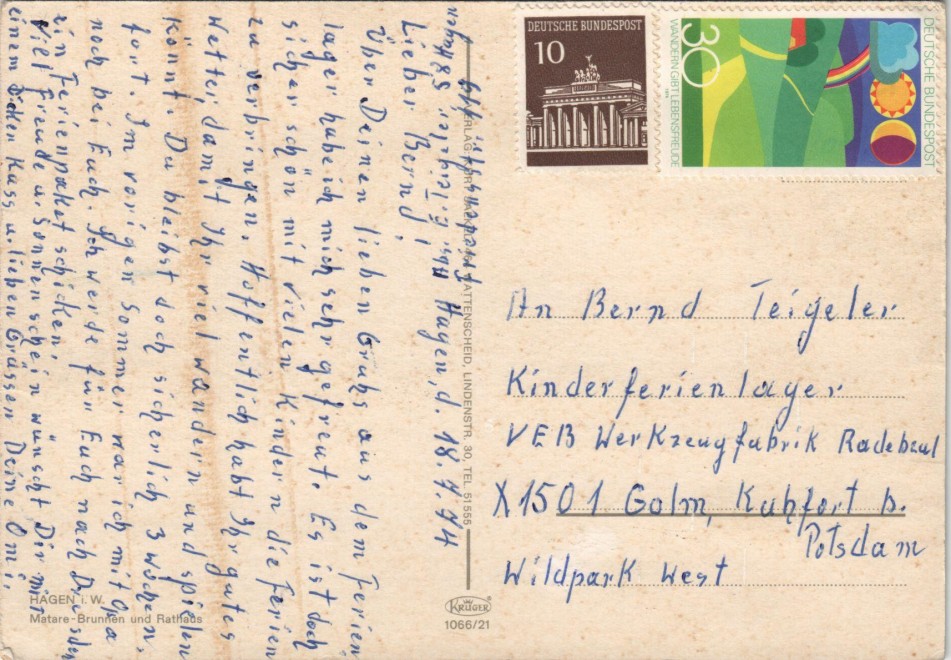 Friedensdorfstr. 44
bei Richter, 58 Hagen
Hagen, d. 18.7.74
Lieber Bernd!
Über Deinen lieben Gruhs aus dem Ferien
lager habe ich mich sehr gefreut. Es ist doch
sicher schön mit vielen Kindern die Ferien
zu verbringen. Hoffentlich habt Ihr gutes
Wetter, damit Ihr viel wandern und spielen
könnt. Du bleibst doch sicherlich 3 Wochen
fort. Im vorigen Sommer war ich mit Opa
noch bei Euch. Ich werde für Euch nach Dresden
ein Ferienpaket schicken.
Viel Freude u. Sonnenschein wünscht Dir mit
einem dicken Kuss u. lieben Grüssen Deine Omi.
DEUTSCHE BUNDESPOST
10
DEUTSCHE BUNDESPOST
WANDERN GIBT LEBENSFREUDE
30
An Bernd Teigeler
Kinderferienlager
VEB Werkzeugfabrik Radebeul
X1501 Golm, Kuhfort b.
Potsdam
Wildpark West
LINDENSTR. 30, TEL. 51555
HAGEN i. W.
Matare-Brunnen und Rathaus
KRÜGER
1066/21